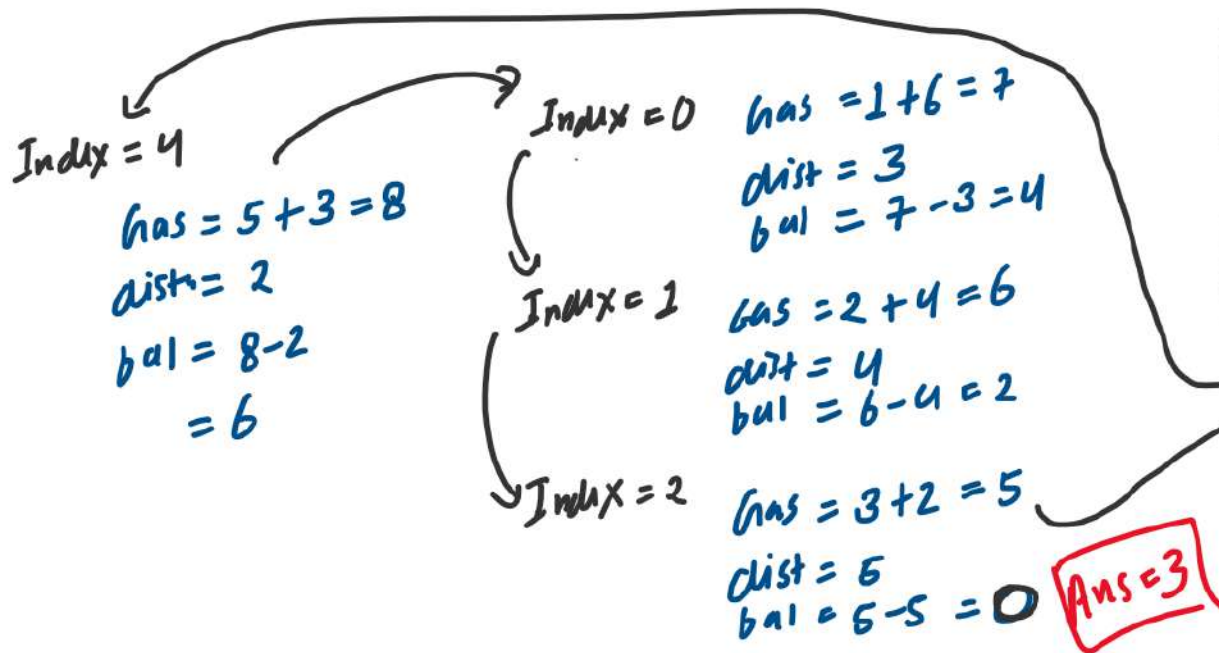 Index = 4
Gas = 5 + 3 = 8
dist = 2
bal = 8 - 2
= 6
Index = 0
Gas = 1 + 6 = 7
dist = 3
bal = 7 - 3 = 4
Index = 1
Gas = 2 + 4 = 6
dist = 4
bal = 6 - 4 = 2
Index = 2
Gas = 3 + 2 = 5
dist = 5
bal = 5 - 5 = 0
Ans = 3